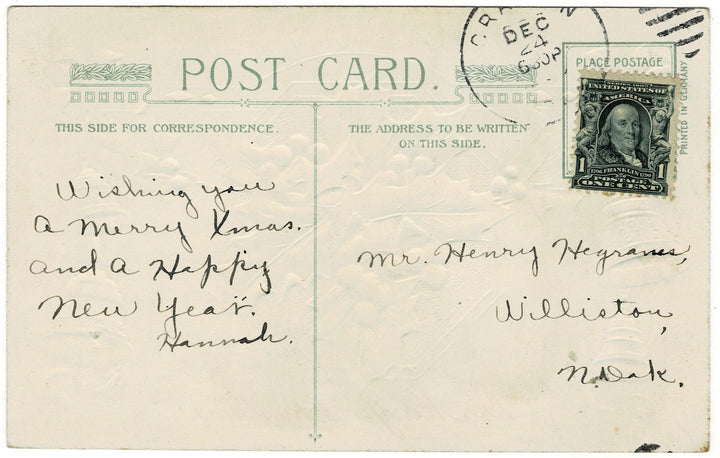 POST CARD.
THIS SIDE FOR CORRESPONDENCE.
THE ADDRESS TO BE WRITTEN
ON THIS SIDE.
DEC
24
PLACE POSTAGE
PRINTED IN GERMANY
UNITED STATES OF
AMERICA
1 FRANKLIN 1
POSTAGE
ONE CENT
Wishing you
a Merry Xmas.
and a Happy
New Year.
Hannah.
Mr. Henry
Williston,
N. Dak.